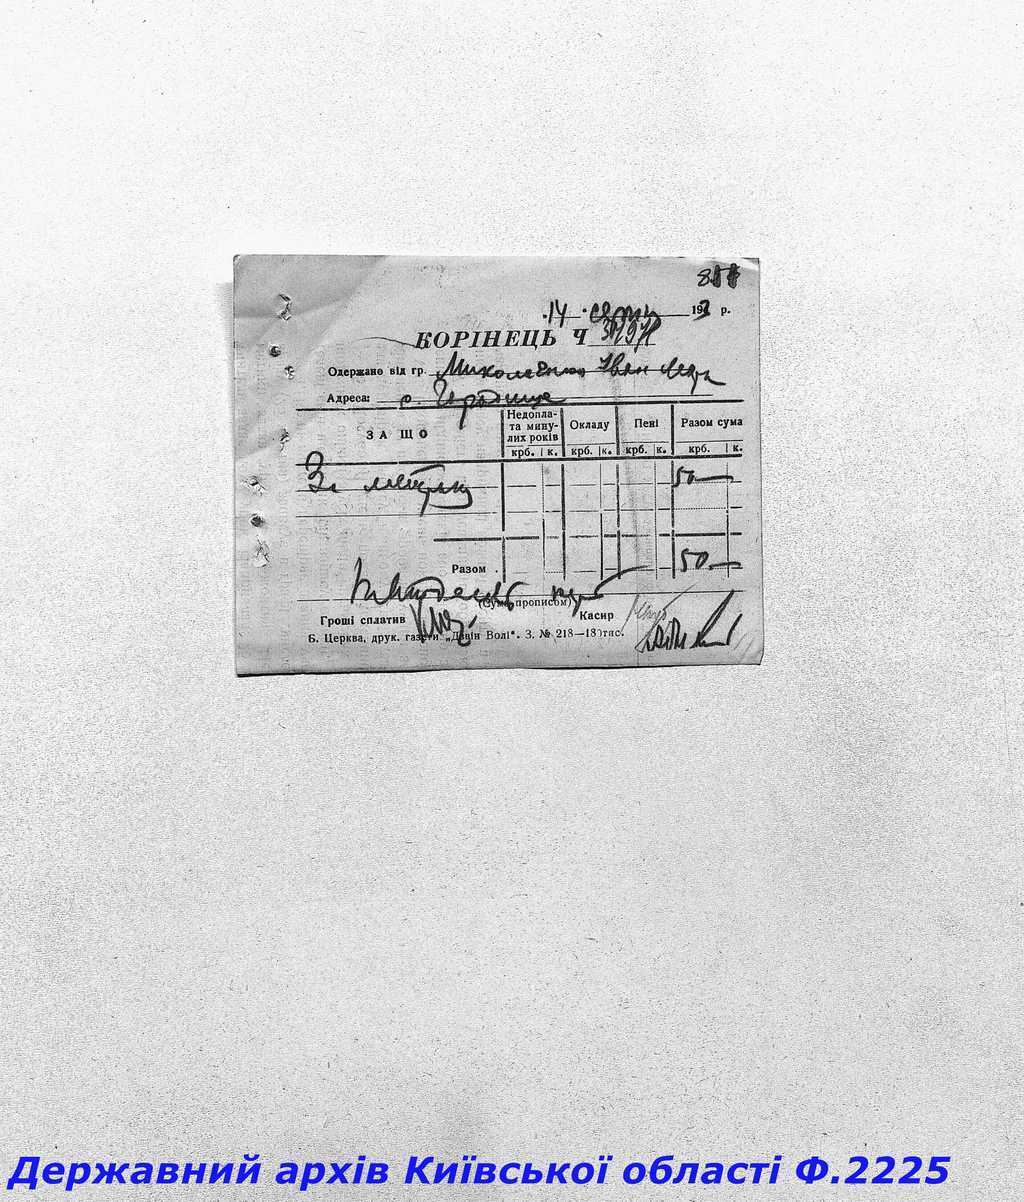 14 серпня 193 р.
КОРІНЕЦЬ Ч
Одержано від гр. Миколаєнко Іван
Адреса: с.
ЗА ЩО
Недопла-та мину-лих років
Окладу
Пені
Разом сума
крб. к. крб. к. крб. к. крб. к.
За 50—
Разом 50—
П'ятдесят крб
(Сума прописом)
Гроші сплатив Касир
Б. Церква, друк. газети „Дзвін Волі“. З. № 218—180тис.
Державний архів Київської області Ф.2225